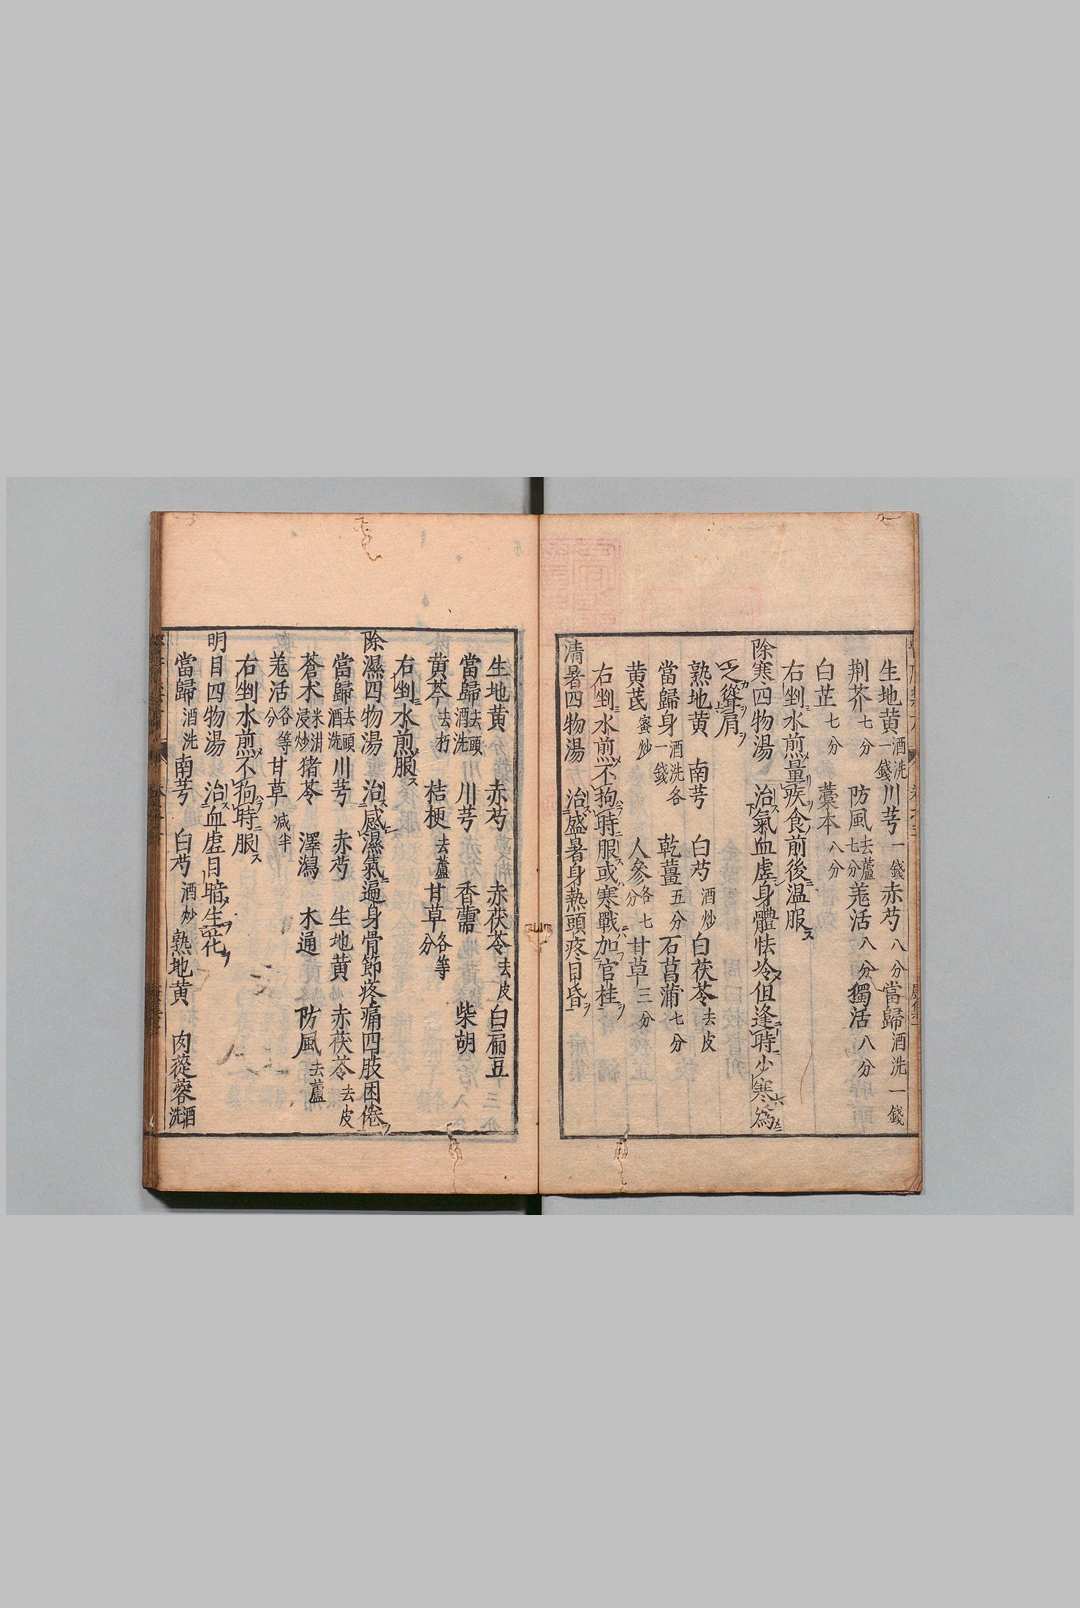 生地黄酒洗一錢 川芎一錢 赤芍八分 當歸酒洗一錢
荆芥七分 防風去蘆七分 羗活八分 獨活八分
白芷七分 藁本八分
右剉水煎量疾食前後温服
除寒四物湯 治氣血虚身體怯冷但逢時少寒爲
乏聳肩
熟地黄 南芎 白芍酒炒 白茯苓去皮
當歸身酒洗各一錢 乾薑五分 石菖蒲七分
黄芪蜜炒 人參各七分 甘草三分
右剉水煎不拘時服或寒戰加官桂
清暑四物湯 治盛暑身熱頭疼目昏
生地黄 赤芍 赤茯苓去皮 白扁豆
當歸去頭酒洗 川芎 香薷 柴胡
黄芩去朽 桔梗去蘆 甘草各等分
右剉水煎服
除濕四物湯 治感濕氣遍身骨節疼痛四肢困倦
當歸去頭酒洗 川芎 赤芍 生地黄 赤茯苓去皮
蒼朮米泔浸炒 猪苓 澤瀉 木通 防風去蘆
羗活各等分 甘草减半
右剉水煎不拘時服
明目四物湯 治血虚目暗生花
當歸酒洗 南芎 白芍酒炒 熟地黄 肉蓯蓉酒洗